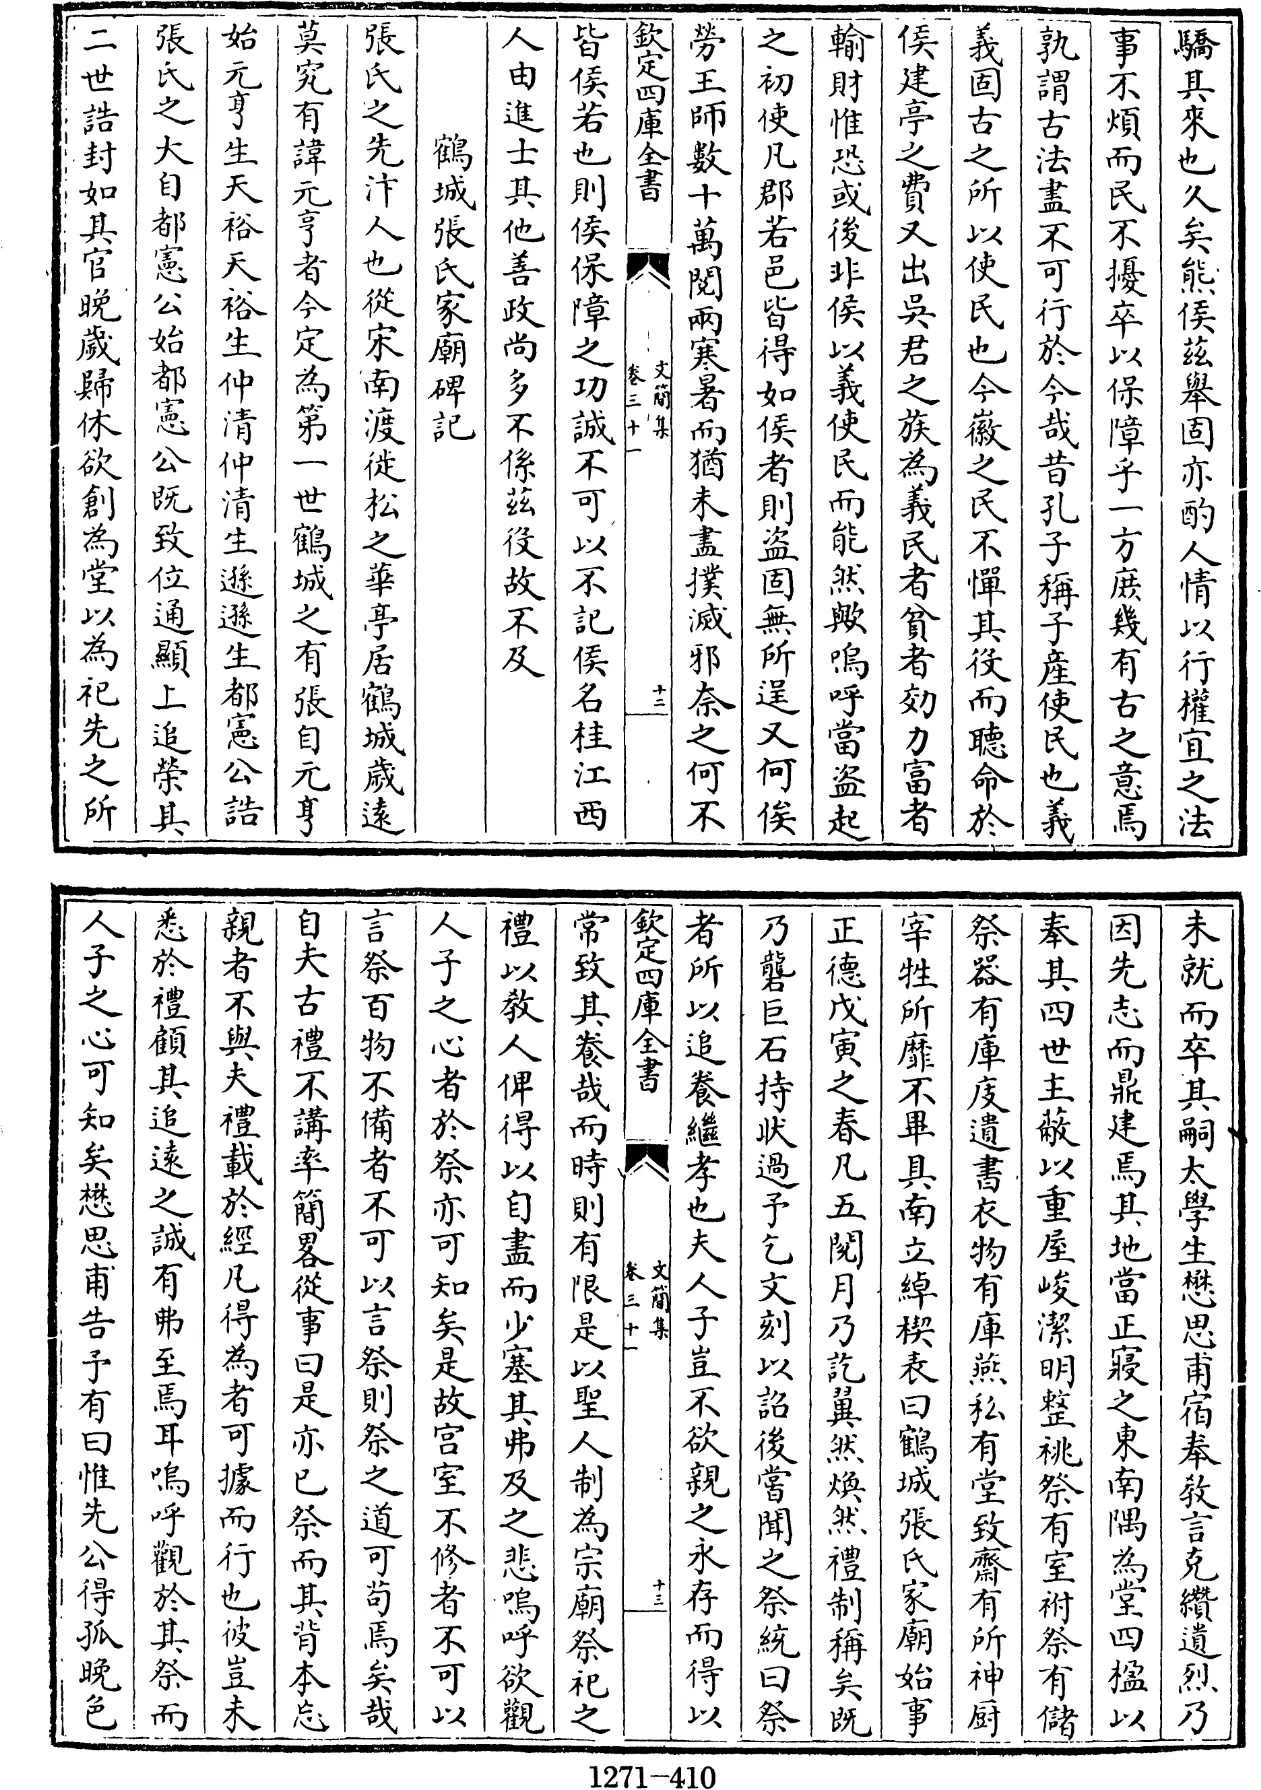 驕其來也久矣熊侯茲舉固亦酌人情以行權宜之法
事不煩而民不擾卒以保障乎一方庶幾有古之意焉
孰謂古法盡不可行於今哉昔孔子稱子產使民也義
義固古之所以使民也今徽之民不憚其役而聽命於
侯建亭之費又出吳君之族為義民者貧者効力富者
輸財惟恐或後非侯以義使民而能然歟嗚呼當盜起
之初使凡郡若邑皆得如侯者則盜固無所逞又何俟
勞王師數十萬閱兩寒暑而猶未盡撲滅邪奈之何不
欽定四庫全書
文簡集
卷三十一
十二
皆侯若也則侯保障之功誠不可以不記侯名桂江西
人由進士其他善政尚多不係茲役故不及
鶴城張氏家廟碑記
張氏之先汴人也從宋南渡徙松之華亭居鶴城歲遠
莫究有諱元亨者今定為第一世鶴城之有張自元亨
始元亨生天裕天裕生仲清仲清生遜遜生都憲公誥
張氏之大自都憲公始都憲公既致位通顯上追榮其
二世誥封如其官晚歲歸休欲創為堂以為祀先之所
未就而卒其嗣太學生懋思甫宿奉教言克纘遺烈乃
因先志而鼎建焉其地當正寢之東南隅為堂四楹以
奉其四世主蔽以重屋峻潔明整祧祭有室祔祭有儲
祭器有庫庋遺書衣物有庫燕私有堂致齋有所神厨
宰牲所靡不畢具南立綽楔表曰鶴城張氏家廟始事
正德戊寅之春凡五閱月乃訖翼然煥然禮制稱矣既
乃礱巨石持狀過予乞文刻以詔後嘗聞之祭統曰祭
者所以追養繼孝也夫人子豈不欲親之永存而得以
欽定四庫全書
文簡集
卷三十一
十三
常致其養哉而時則有限是以聖人制為宗廟祭祀之
禮以教人俾得以自盡而少塞其弗及之悲嗚呼欲觀
人子之心者於祭亦可知矣是故宫室不修者不可以
言祭百物不備者不可以言祭則祭之道可苟焉矣哉
自夫古禮不講率簡畧從事曰是亦已祭而其背本忘
親者不與夫禮載於經凡得為者可據而行也彼豈未
悉於禮顧其追遠之誠有弗至焉耳嗚呼觀於其祭而
人子之心可知矣懋思甫告予有曰惟先公得孤晚色
1271—410